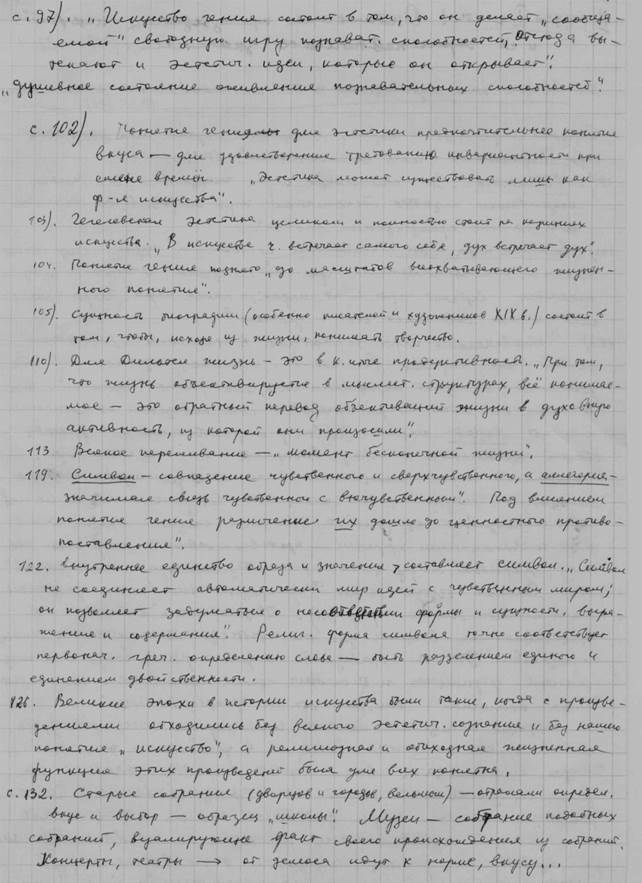 с. 97). „Искусство гения состоит в том, что он делает „сообща-
емой" свободную игру познават. способностей. Отсюда вы-
текают и эстетич. идеи, которые он открывает".
„душевное состояние оживления познавательных способностей".
с. 102). Понятие гения для эстетики предпочтительнее понятия
вкуса — для удовлетворения требованию инвариантности при
смене времён. „Эстетика может существовать лишь как
ф-я искусства".
103). Гегелевская эстетика целиком и полностью стоит на позициях
искусства. „В искусстве ч. встречает самого себя, дух встречает дух".
104. Понятие гения поднято „до масштабов всеохватывающего жизнен-
ного понятия".
105). Сущность биографии (особенно писателей и художников XIX в.) состоит в
том, чтобы, исходя из жизни, понимать творчество.
110). Для Дильтея жизнь — это в к. итоге продуктивность. „При том,
что жизнь объективируется в мыслит. структурах, всё понимае-
мое — это обратный перевод объективаций жизни в духовную
активность, из которой они произошли".
113. Всякое переживание — „момент бесконечной жизни".
119. Символ — совпадение чувственного и сверхчувственного, а аллегория —
значимая связь чувственного с внечувственным". Под влиянием
понятия гения различение их дошло до ценностного противо-
поставления".
122. Внутреннее единство образа и значения, составляет символ. „Символ
не соединяет автоматически мир идей с чувственным миром;
он позволяет задуматься о несоответствии формы и сущности. выра-
жения и содержания". Религ. форма символа точно соответствует
первонач. греч. определению слова — быть разделением единого и
единением двойственности.
126. Великие эпохи в истории искусства были такие, когда с произве-
дениями обходились без всякого эстетич. сознания и без нашего
понятия „искусство", а религиозная и обиходная жизненная
функция этих произведений была для всех понятна.
с. 132. Старые собрания (дворцов и городов, вельмож) — отражали определ.
вкус и выбор — образец „школы". Музеи — собрание подобных
собраний, вуалирующие факт своего происхождения из собраний.
Концерты, театры → от демоса идут к норме, вкусу...